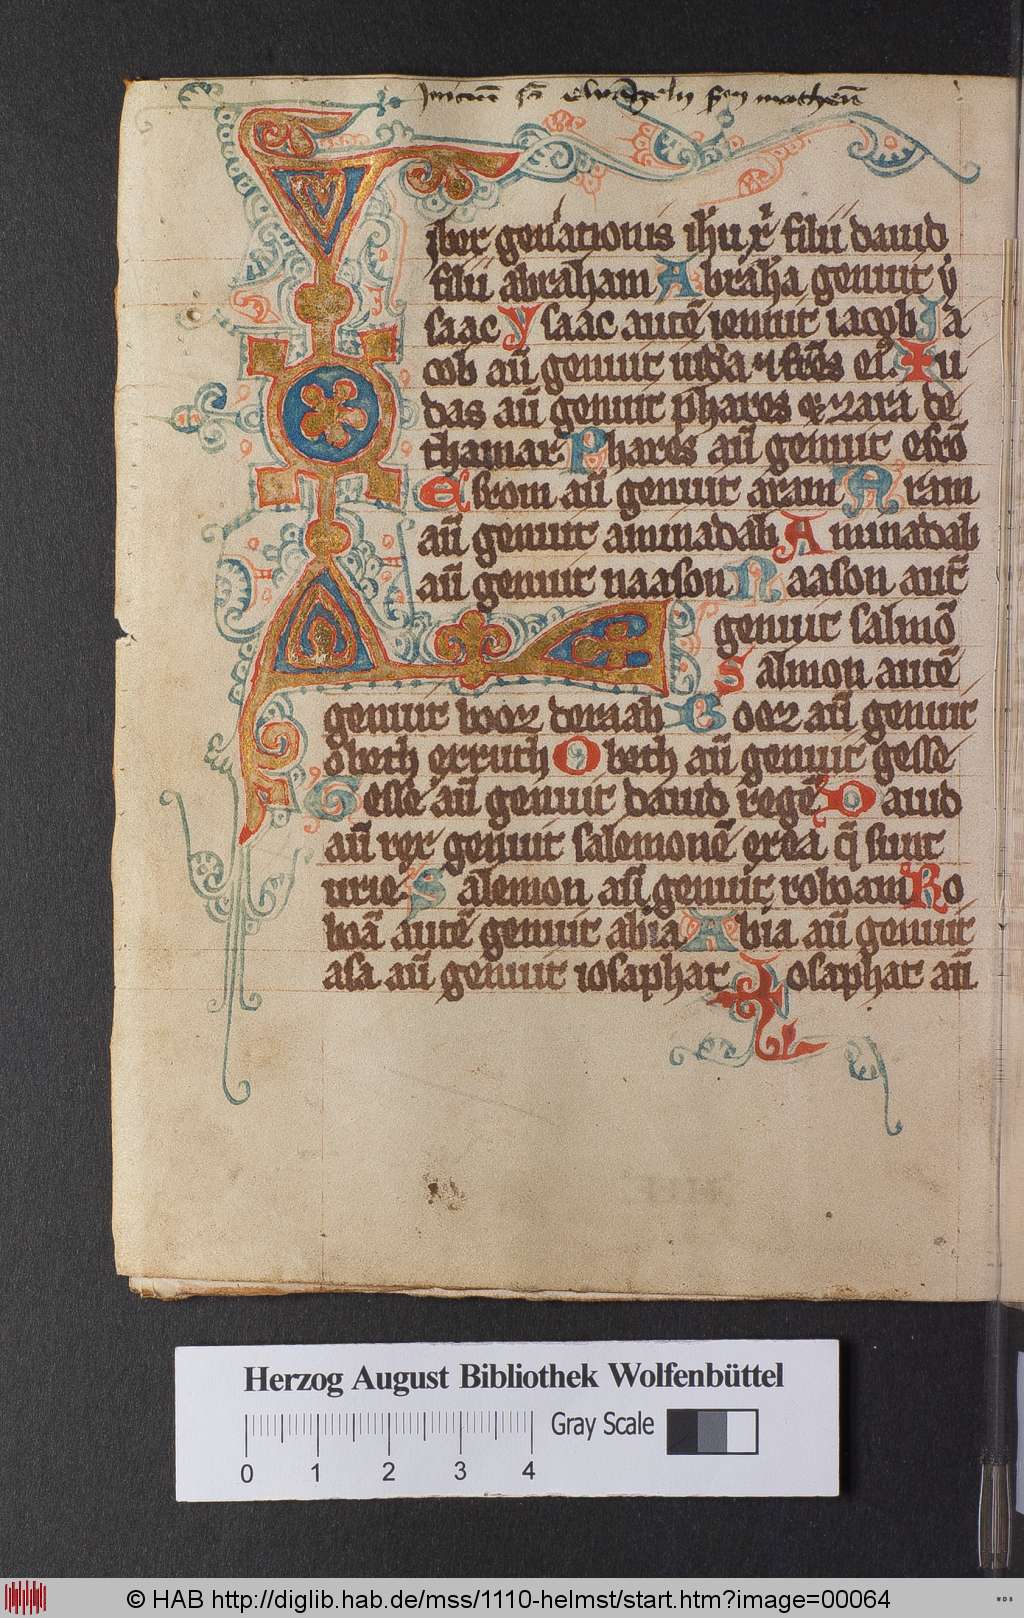 Iniciū sc̄i ewangelij scdm matheū
Liber gen̓ationis ih̄u xp̄i filii dauid
filii abraham Abrah̄a genuit y
saac Ysaac autē ienuit iacob Ja
cob aū genuit iuda ⁊ fr̄es ei⁹. Iu
das aū genuit phares ⁊ zara de
thamar Phares aū genuit esrō
Esrom aū genuit aram Aram
aū genuit aminadab Aminadab
aū genuit naason Naason aut̄
genuit salmō
Salmon autē
genuit booz de raab Booz aū genuit
obeth ex ruth Obeth aū genuit gesse
Gesse aū genuit dauid regē Dauid
aū rex genuit salemonē ex ea q̄ fuit
urie. Salemon aū genuit roboam Ro
boā autē genuit abia Abia aū genuit
asa aū genuit iosaphat Josaphat aū
Herzog August Bibliothek Wolfenbüttel
Gray Scale
0 1 2 3 4
© HAB http://diglib.hab.de/mss/1110-helmst/start.htm?image=00064